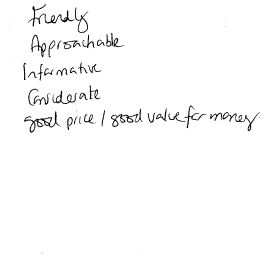 Friendly
Approachable
Informative
Considerate
good price / good value for money